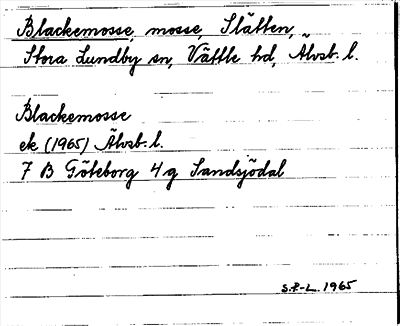 Blackemosse, mosse, Slätten,
Stora Lundby sn, Vättle hd, Älvsb. l.
Blackemosse
ek (1965) Älvsb. l.
7 B Göteborg 4 g Sandsjödal
S.F-L. 1965